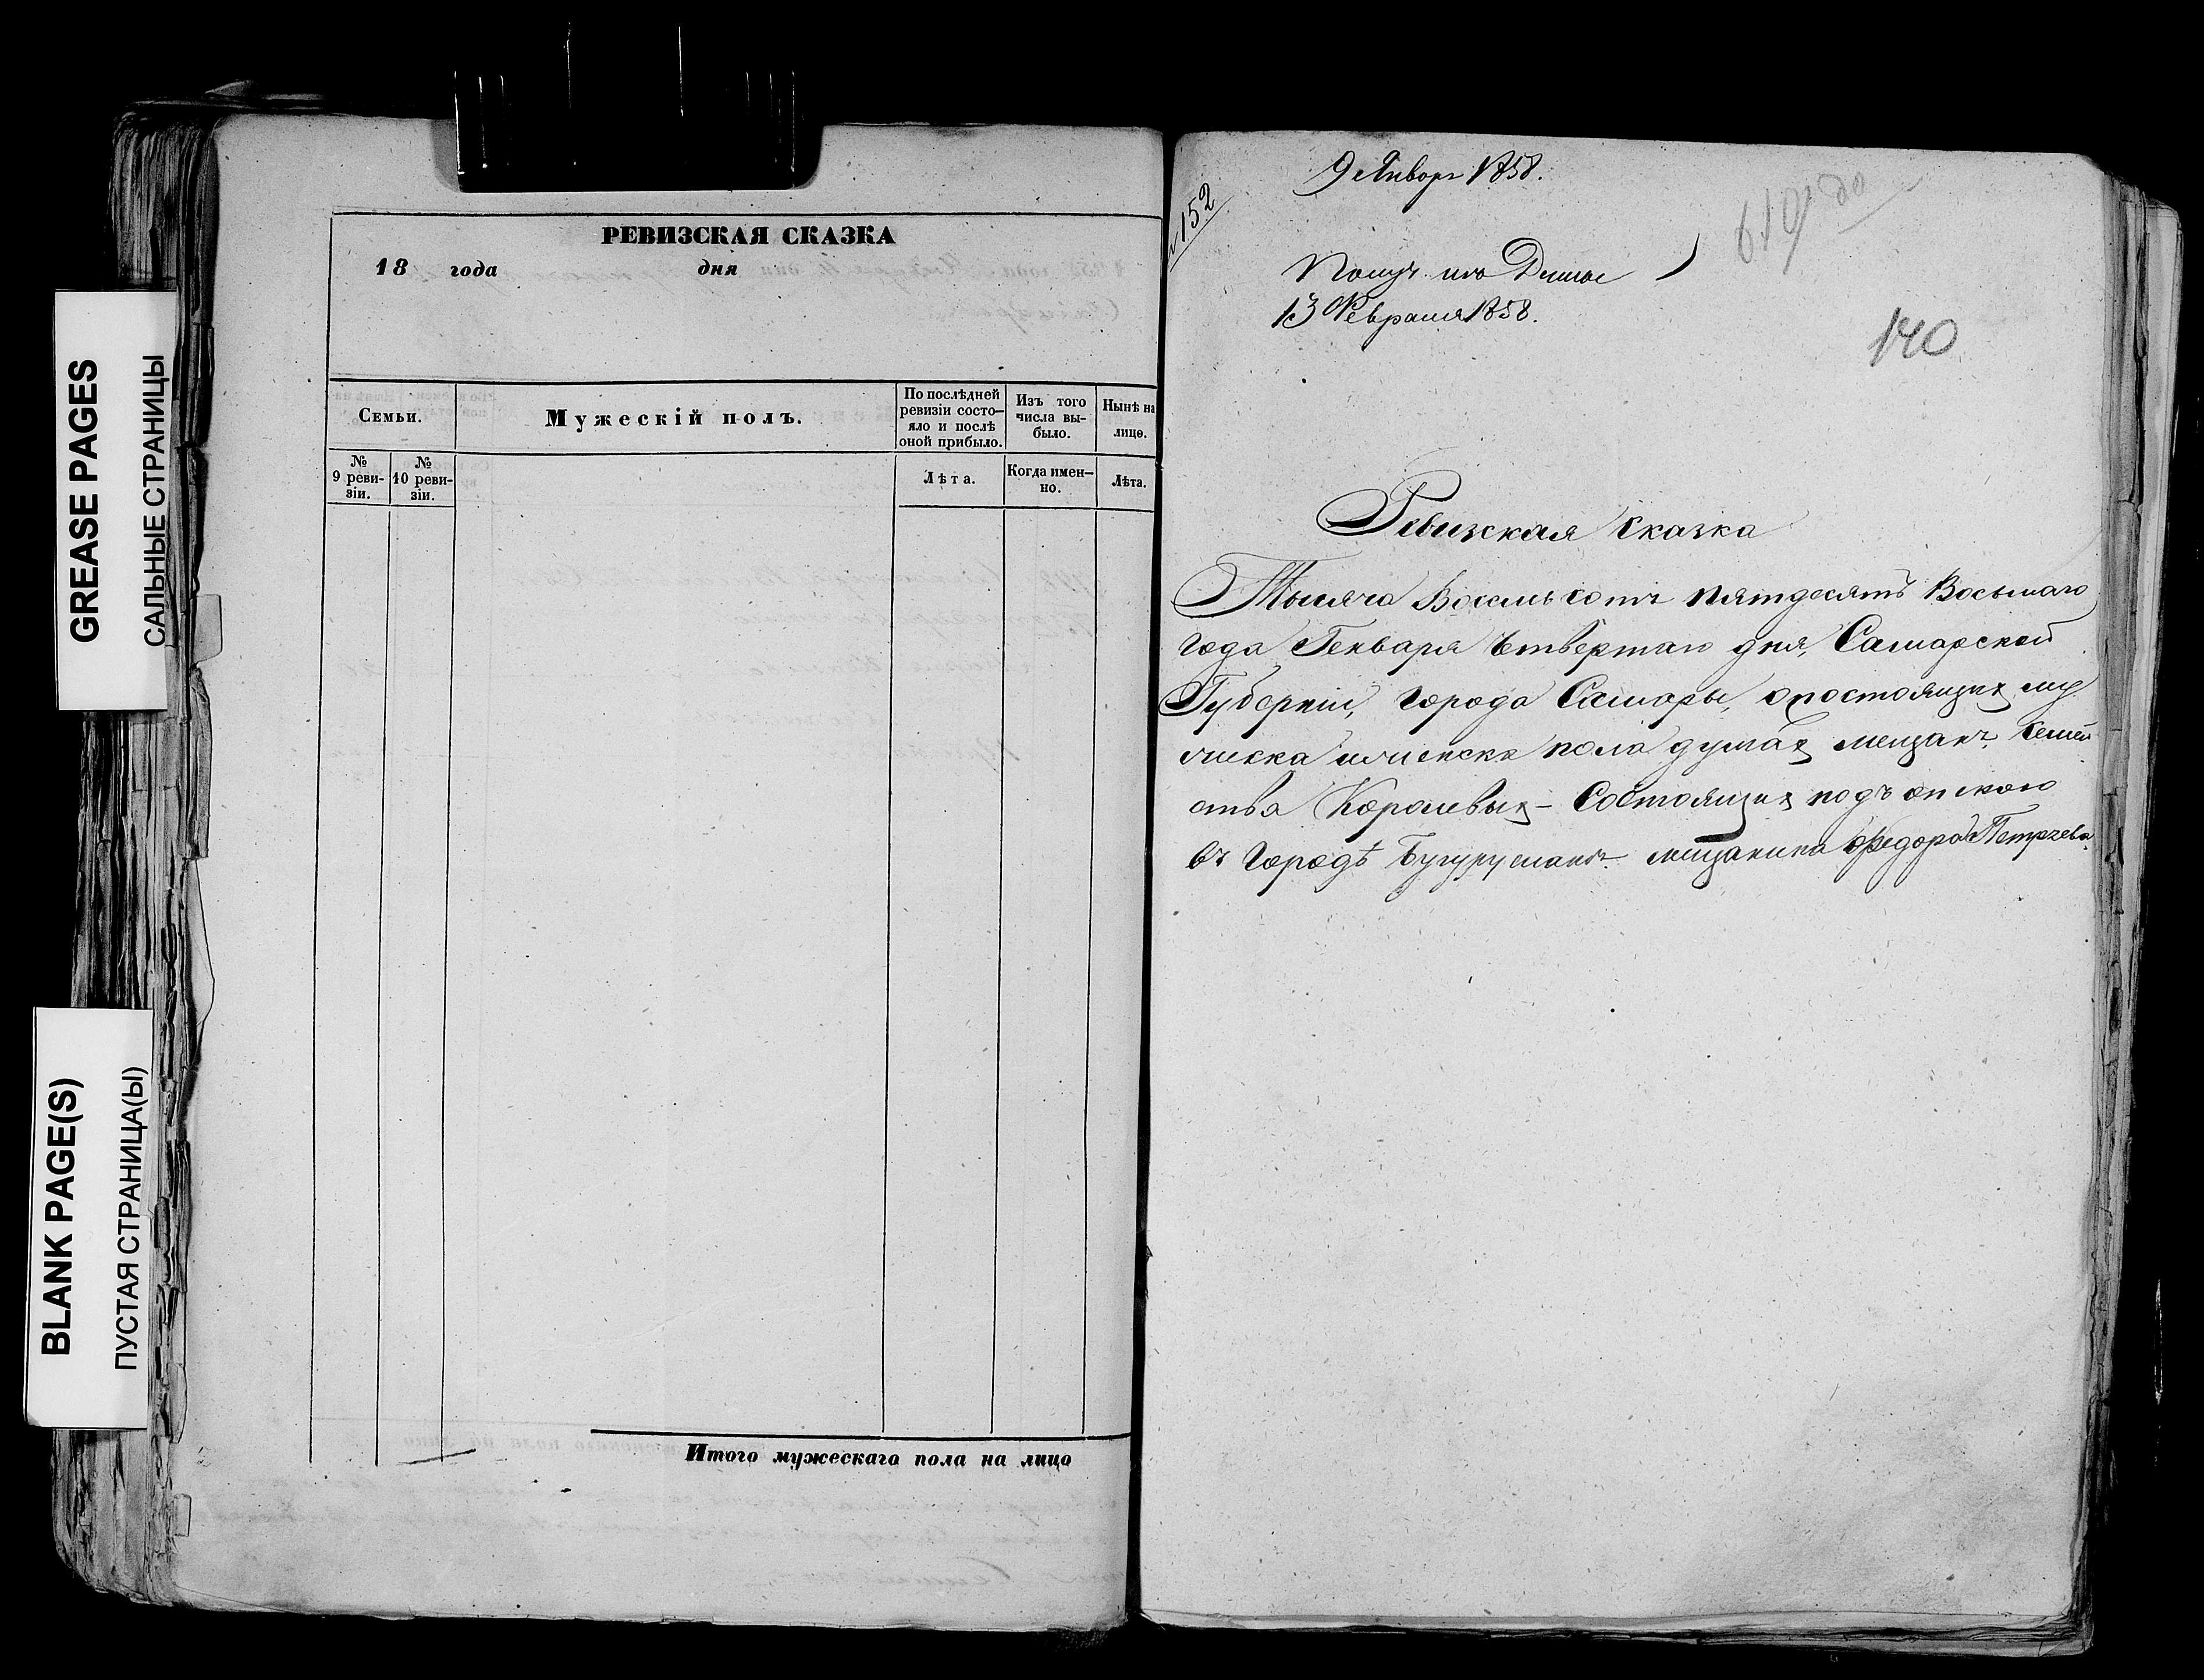 GREASE PAGES
САЛЬНЫЕ СТРАНИЦЫ
BLANK PAGE(S)
ПУСТАЯ СТРАНИЦА(Ы)
РЕВИЗСКАЯ СКАЗКА
18 года дня
Семьи.
Мужескій полъ.
По послѣдней
ревизіи состо-
яло и послѣ
оной прибыло.
Изъ того
числа вы-
было.
Нынѣ на
лице.
№
9 реви-
зіи.
№
10 реви-
зіи.
Лѣта.
Когда имен-
но.
Лѣта.
Итого мужескаго пола на лицо
9 Января 1858.
152
13 Февраля 1858.
140
Ревизская сказка
Тысяча Восемьсотъ пятдесятъ Восьмаго
года Генваря Четвертаго дня, Самарской
Губерніи, города Самары, о состоящихъ му
пола душахъ мещанъ. Семей
ства Королевыхъ - Состоящихъ подъ опѣкою
въ Городѣ Бугурусланъ. мещанина Федора